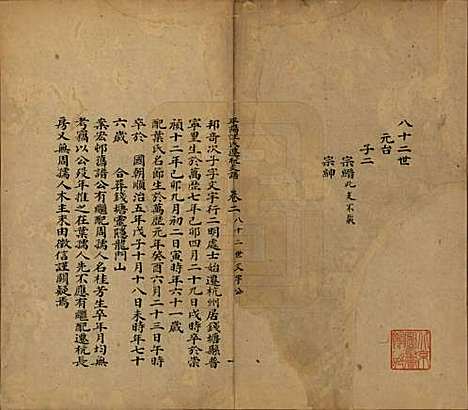 八十二世
元台
子二
宗縉此支不載
宗紳
平陽汪氏遷杭支譜 卷二 八十二世文宇公 一
邦奇次子字文宇行二明處士始遷杭州居錢塘縣普
寧里生於萬歷七年己卯四月二十九日戌時卒於崇
禎十二年己卯九月初二日寅時年六十一歲
配葉氏名節生於萬歷元年癸酉六月二十三日午時
卒於 國朝順治五年戊子十月十八日未時年七十
六歲 合葬錢塘靈隱龍門山
案宏邨舊譜公有繼配周孺人名桂芳生卒年月均無
考竊以公歿年推之在葉孺人先不應有繼配遷杭長
房又無周孺人木主未由徵信謹闕疑焉